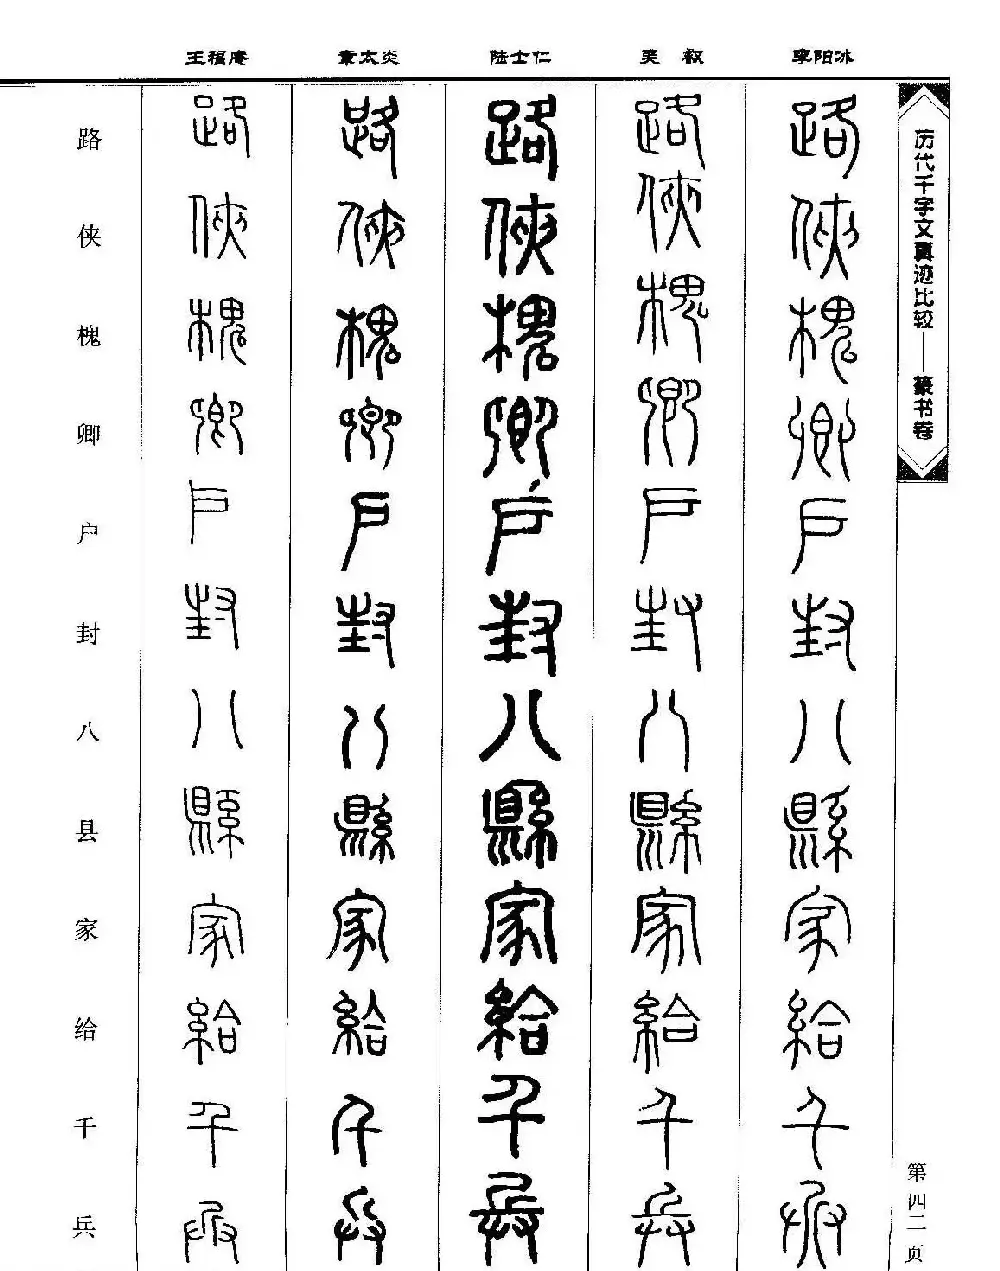 李阳冰
吴叡
陆士仁
章太炎
王福庵
历代千字文真迹比较——篆书卷
第四二页
路侠槐卿户封八县家给千兵
路俠槐卿戶封八縣家給千兵
路俠槐卿戶封八縣家給千兵
路俠槐卿戶封八縣家給千兵
路俠槐卿戶封八縣家給千兵
路俠槐卿戶封八縣家給千兵